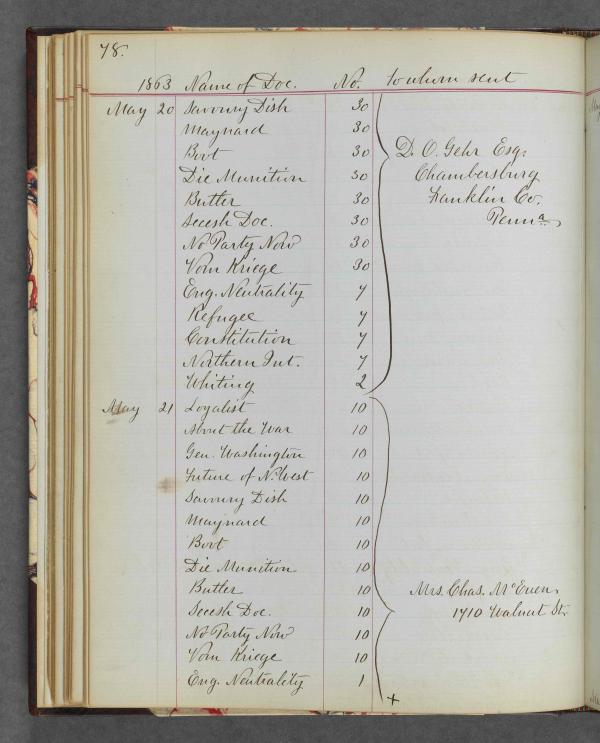 78.
1863 Name of Doc. No. to whom sent
May 20 Savoury Dish 30
Maynard 30
Boot 30 D. O. Gehr Esq.
Die Munition 30 Chambersburg
Butler 30 Franklin Co.
Secesh Doc. 30 Penna
No Party Now 30
Vom Kriege 30
Eng. Neutrality 7
Refugee 7
Constitution 7
Northern Int. 7
Whiting 2
May 21 Loyalist 10
About the War 10
Gen. Washington 10
Future of N. West 10
Savoury Dish 10
Maynard 10
Boot 10
Die Munition 10
Butler 10 Mrs. Chas. McEuen
Secesh Doc. 10 1710 Walnut St.
No Party Now 10
Vom Kriege 10
Eng. Neutrality 1
+